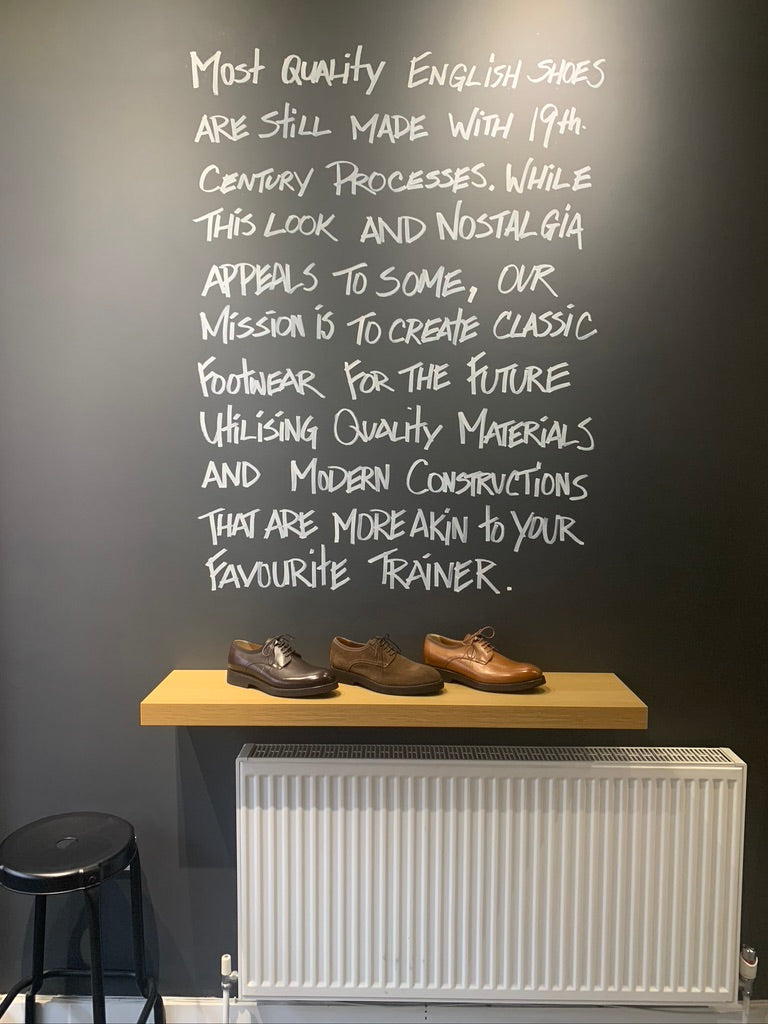 Most Quality English Shoes
are still made with 19th.
Century Processes. While
this look and Nostalgia
appeals to some, our
Mission is to create classic
Footwear for the Future
Utilising Quality Materials
and Modern Constructions
that are more akin to your
Favourite Trainer.